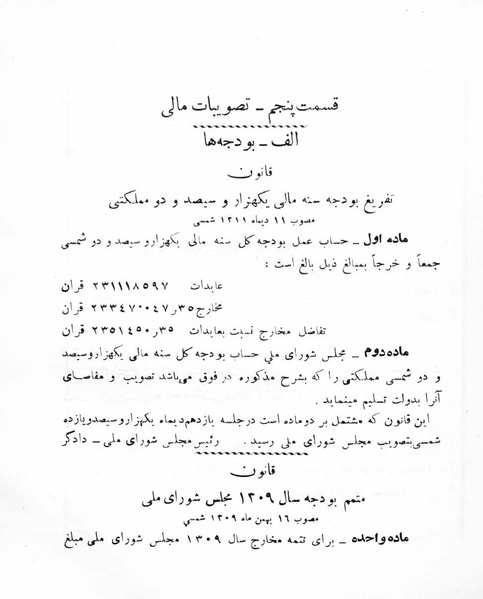 قسمت پنجم ـ تصویبات مالی
الف ـ بودجه‌ها
قانون
تفریغ بودجه سنه مالی یکهزار و سیصد و دو مملکتی
مصوب ۱۱ دیماه ۱۳۱۱ شمسی
ماده اول ـ حساب عمل بودجه کل سنه مالی یکهزاروسیصد و دو شمسی
جمعاً و خرجاً بمبالغ ذیل بالغ است :
عایدات ۲۳۱۱۱۸۵۹۷ قران
مخارج ۲۳۳۴۷۰۰۴۷ر۳۵ قران
تفاضل مخارج نسبت بعایدات ۲۳۵۱۴۵۰ر۳۵ قران
ماده دوم ـ مجلس شورای ملی حساب بودجه کل سنه مالی یکهزاروسیصد
و دو شمسی مملکتی را که بشرح مذکوره در فوق می‌باشد تصویب و مفاصای
آنرا بدولت تسلیم مینماید .
این قانون که مشتمل بر دوماده است درجلسه یازدهم‌دیماه یکهزاروسیصدویازده
شمسی‌بتصویب مجلس شورای ملی رسید . رئیس‌مجلس شورای ملی ـ دادگر
قانون
متمم بودجه سال ۱۳۰۹ مجلس شورای ملی
مصوب ۱۶ بهمن ماه ۱۳۰۹ شمسی
ماده واحده ـ برای تتمه مخارج سال ۱۳۰۹ مجلس شورای ملی مبلغ